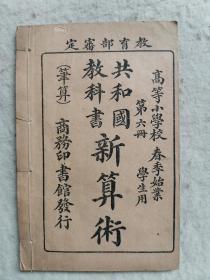 教育部審定
高等小學校 春季始業
第六冊 學生用
共和國
教科書
新算術
(筆算)
商務印書館發行